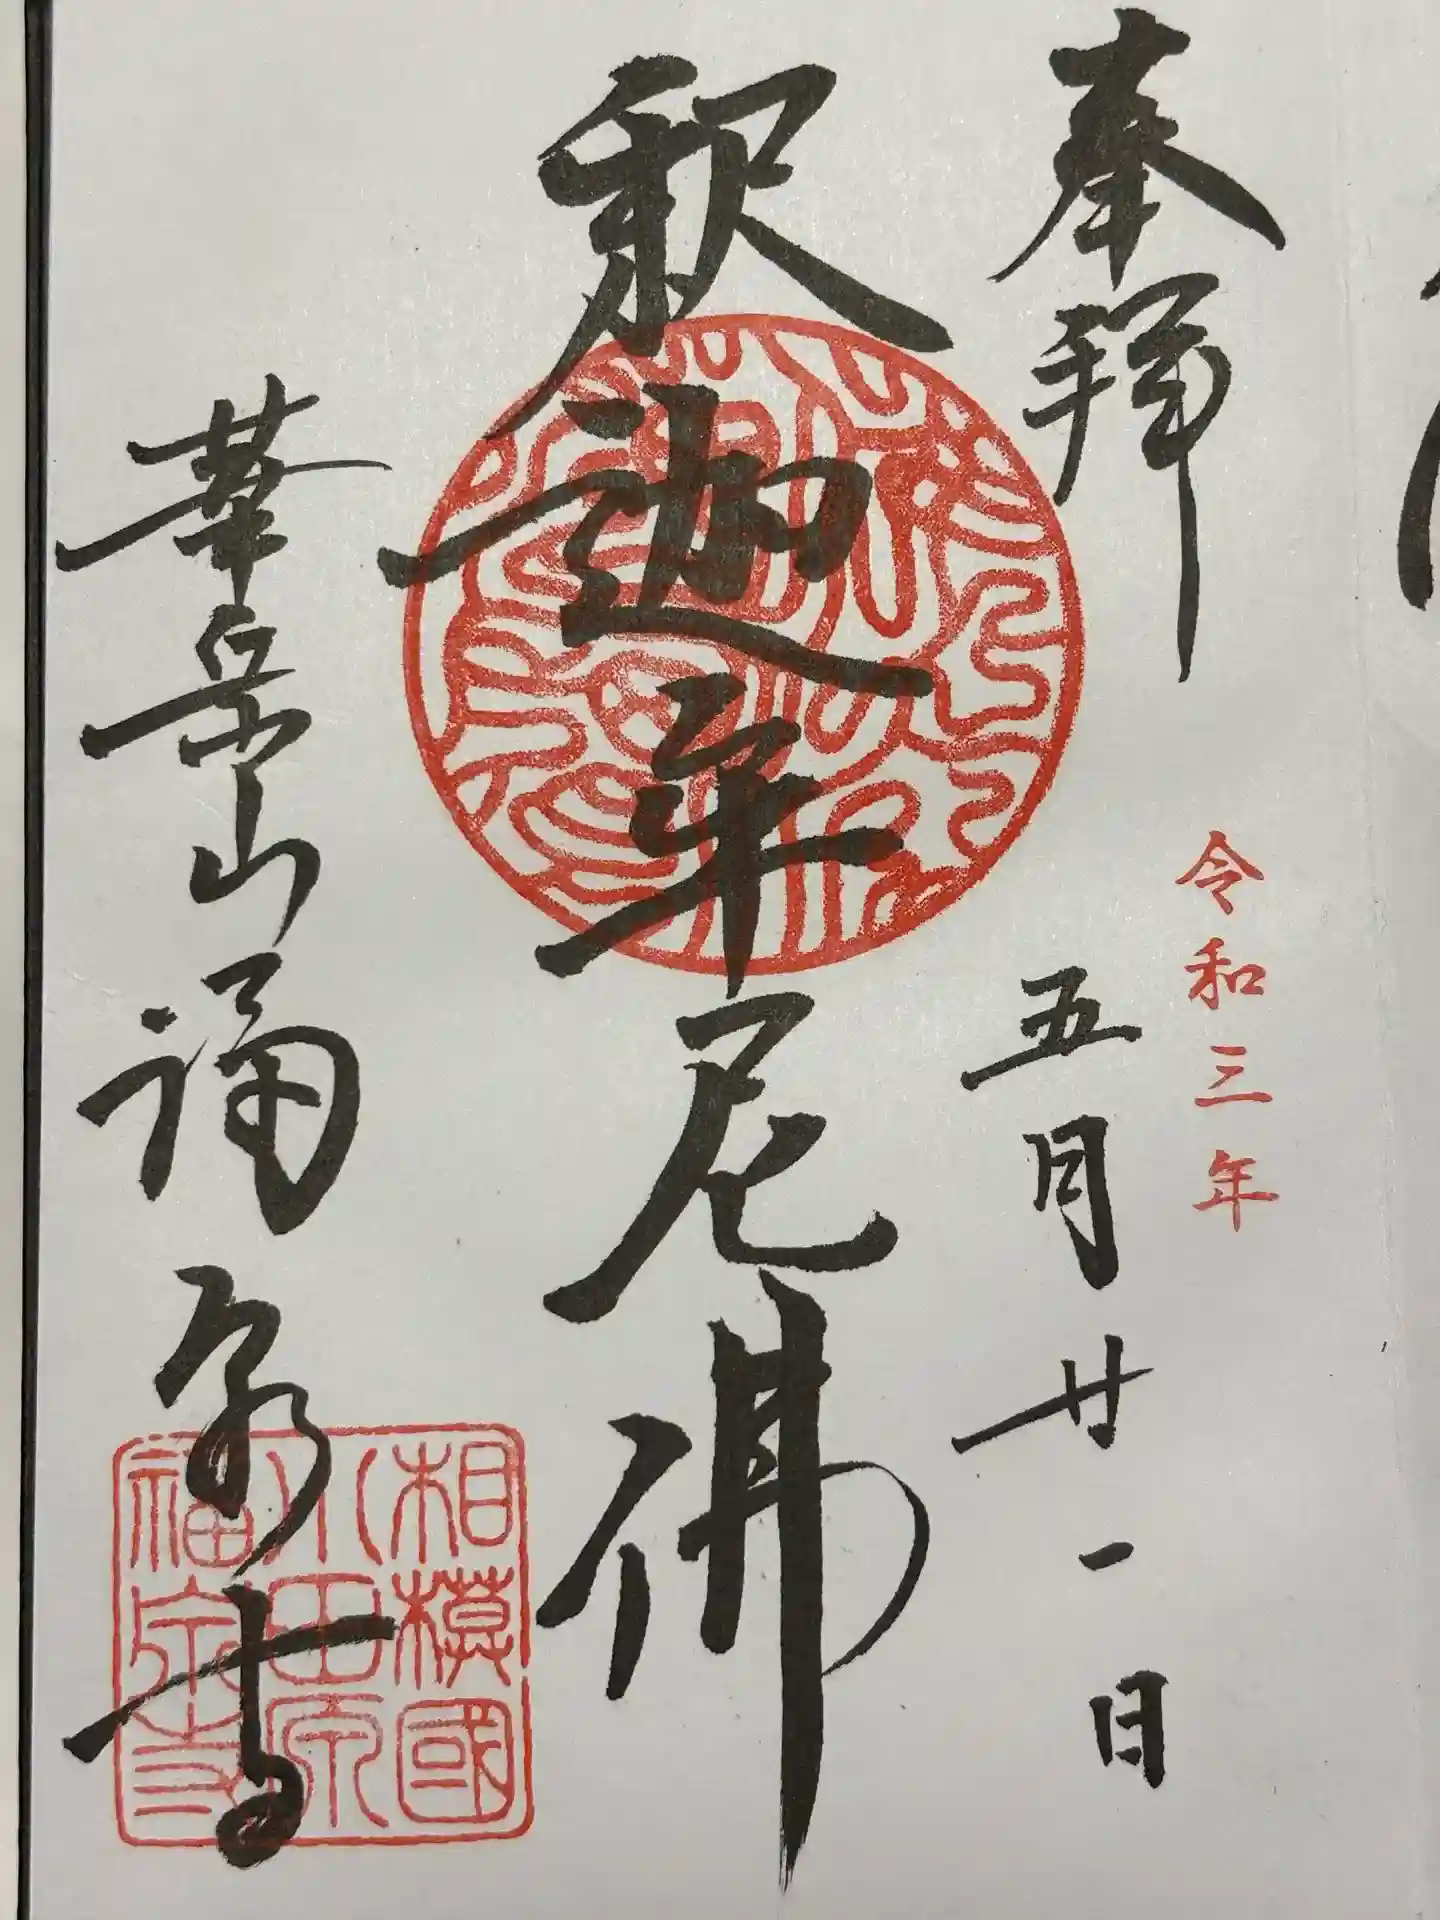 奉拜
令和三年
五月廿一日
釈迦牟尼佛
華岳山福泉寺
相模國
小田原
福泉寺